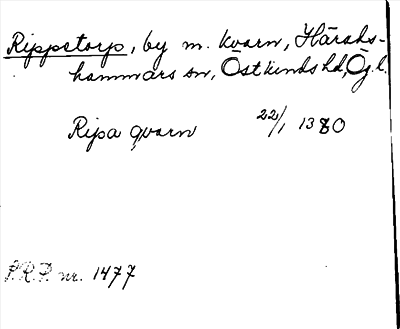 Rippetorp, by m. kvarn, Härads-
hammars sn, Östkinds hd, Ög. l.
Ripa qvarn 22/1 1380
S.R.P. nr. 1477